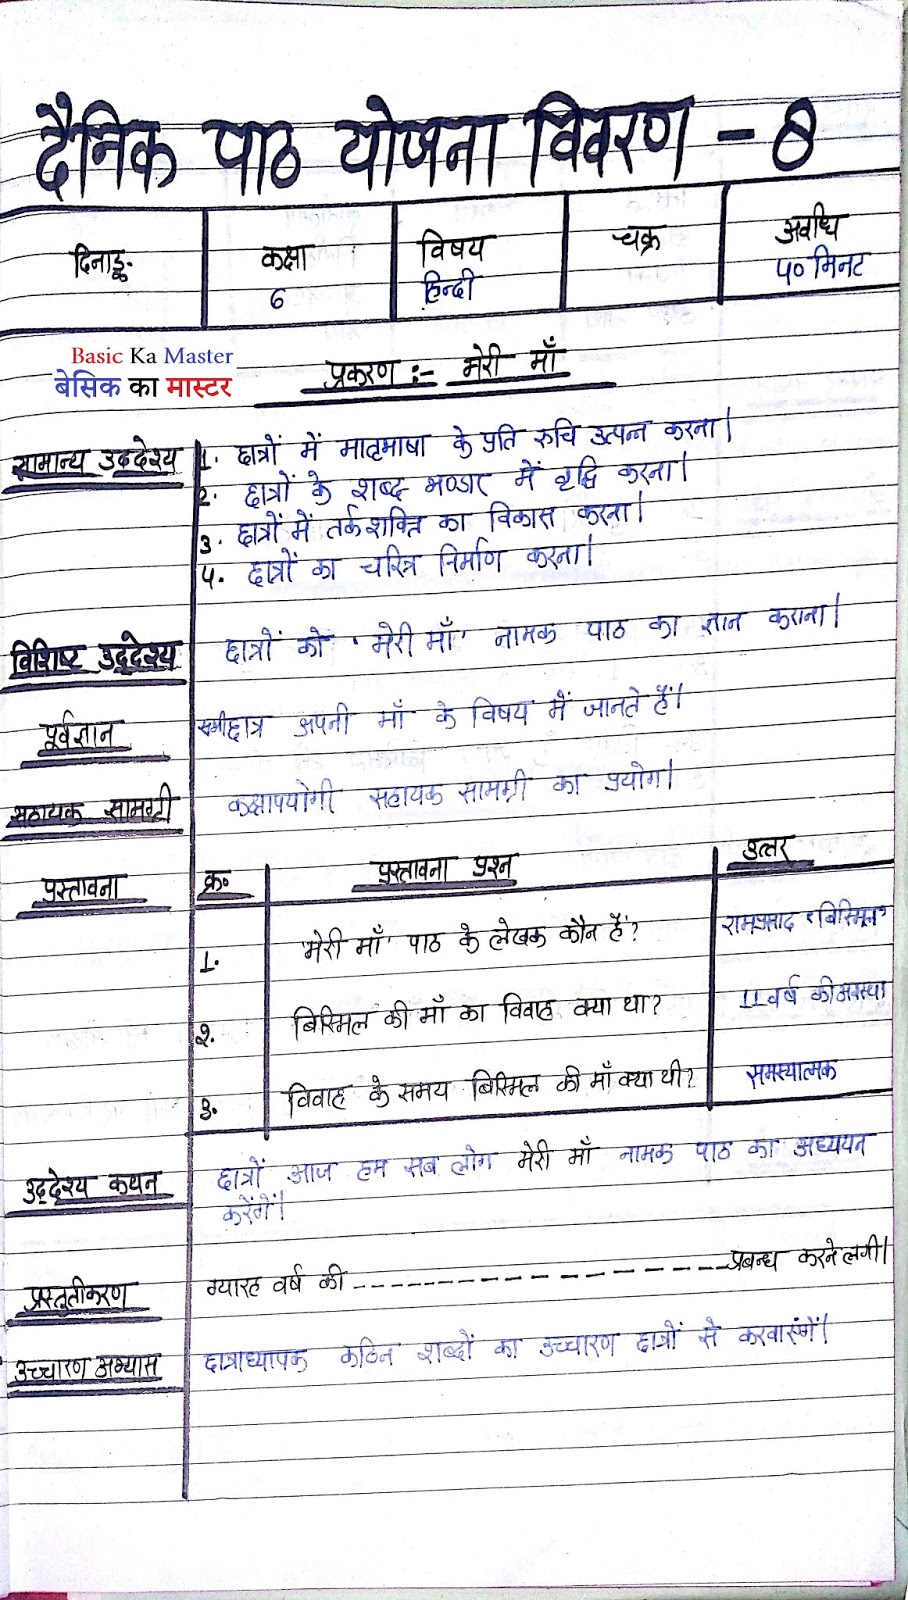 दैनिक पाठ योजना विवरण - 8
दिनाङ्क कक्षा विषय चक्र अवधि
6 हिन्दी ५० मिनट
Basic Ka Master
बेसिक का मास्टर
प्रकरण :- मेरी माँ
सामान्य उद्देश्य 1. छात्रों में मातृभाषा के प्रति रुचि उत्पन्न करना।
2. छात्रों के शब्द भण्डार में वृद्धि करना।
3. छात्रों में तर्कशक्ति का विकास करना।
4. छात्रों का चरित्र निर्माण करना।
विशिष्ट उद्देश्य छात्रों को 'मेरी माँ' नामक पाठ का ज्ञान कराना।
पूर्वज्ञान सभी छात्र अपनी माँ के विषय में जानते हैं।
सहायक सामग्री कक्षोपयोगी सहायक सामग्री का प्रयोग।
प्रस्तावना क्र॰ प्रस्तावना प्रश्न उत्तर
1. 'मेरी माँ' पाठ के लेखक कौन हैं? रामप्रसाद 'बिस्मिल'
2. बिस्मिल की माँ का विवाह क्या था? 11 वर्ष की अवस्था
3. विवाह के समय बिस्मिल की माँ क्या थी? समस्यात्मक
उद्देश्य कथन छात्रों आज हम सब लोग मेरी माँ नामक पाठ का अध्ययन
करेंगें।
प्रस्तुतीकरण ग्यारह वर्ष की ------------------ प्रबन्ध करने लगी।
उच्चारण अभ्यास छात्राध्यापक कठिन शब्दों का उच्चारण छात्रों से करवाएंगें।